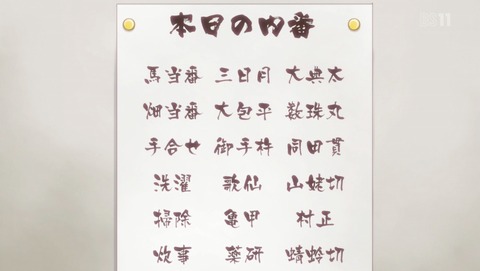 本日の内番
馬当番 三日月 大典太
畑当番 大包平 数珠丸
手合せ 御手杵 同田貫
洗濯 歌仙 山姥切
掃除 亀甲 村正
炊事 薬研 蜻蛉切